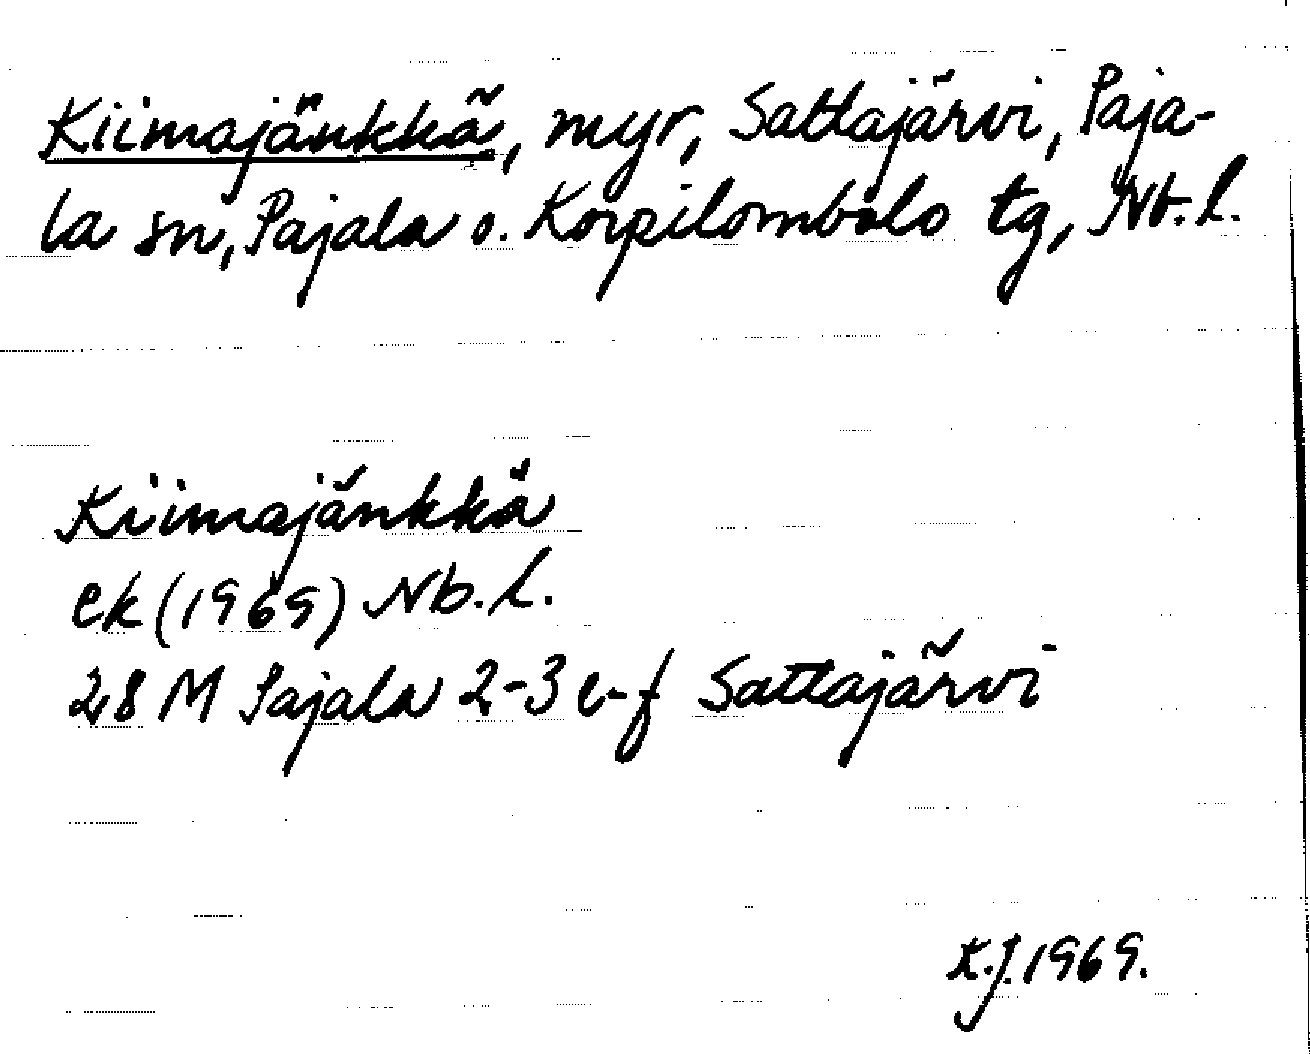 Kiimajänkkä, myr, Sattajärvi, Paja-
la sn, Pajala o. Korpilombolo tg, Nb. l.
Kiimajänkkä
ek (1969) Nb. l.
28 M Pajala 2-3 e-f Sattajärvi
K.J. 1969.